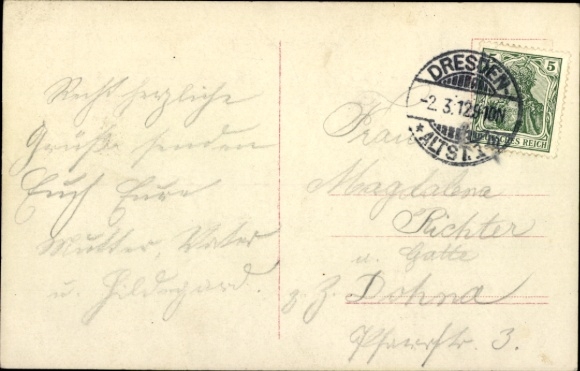 Recht herzliche
Grüße senden
Euch Eure
Mutter, Vater
u. Hildegard.
DRESDEN-
-2.3.12.9-10N
* ALTST.
5
DEUTSCHES REICH
Frau
Magdalena
Richter
u. Gatte
z. Z. Dohna
Pfarrstr. 3.